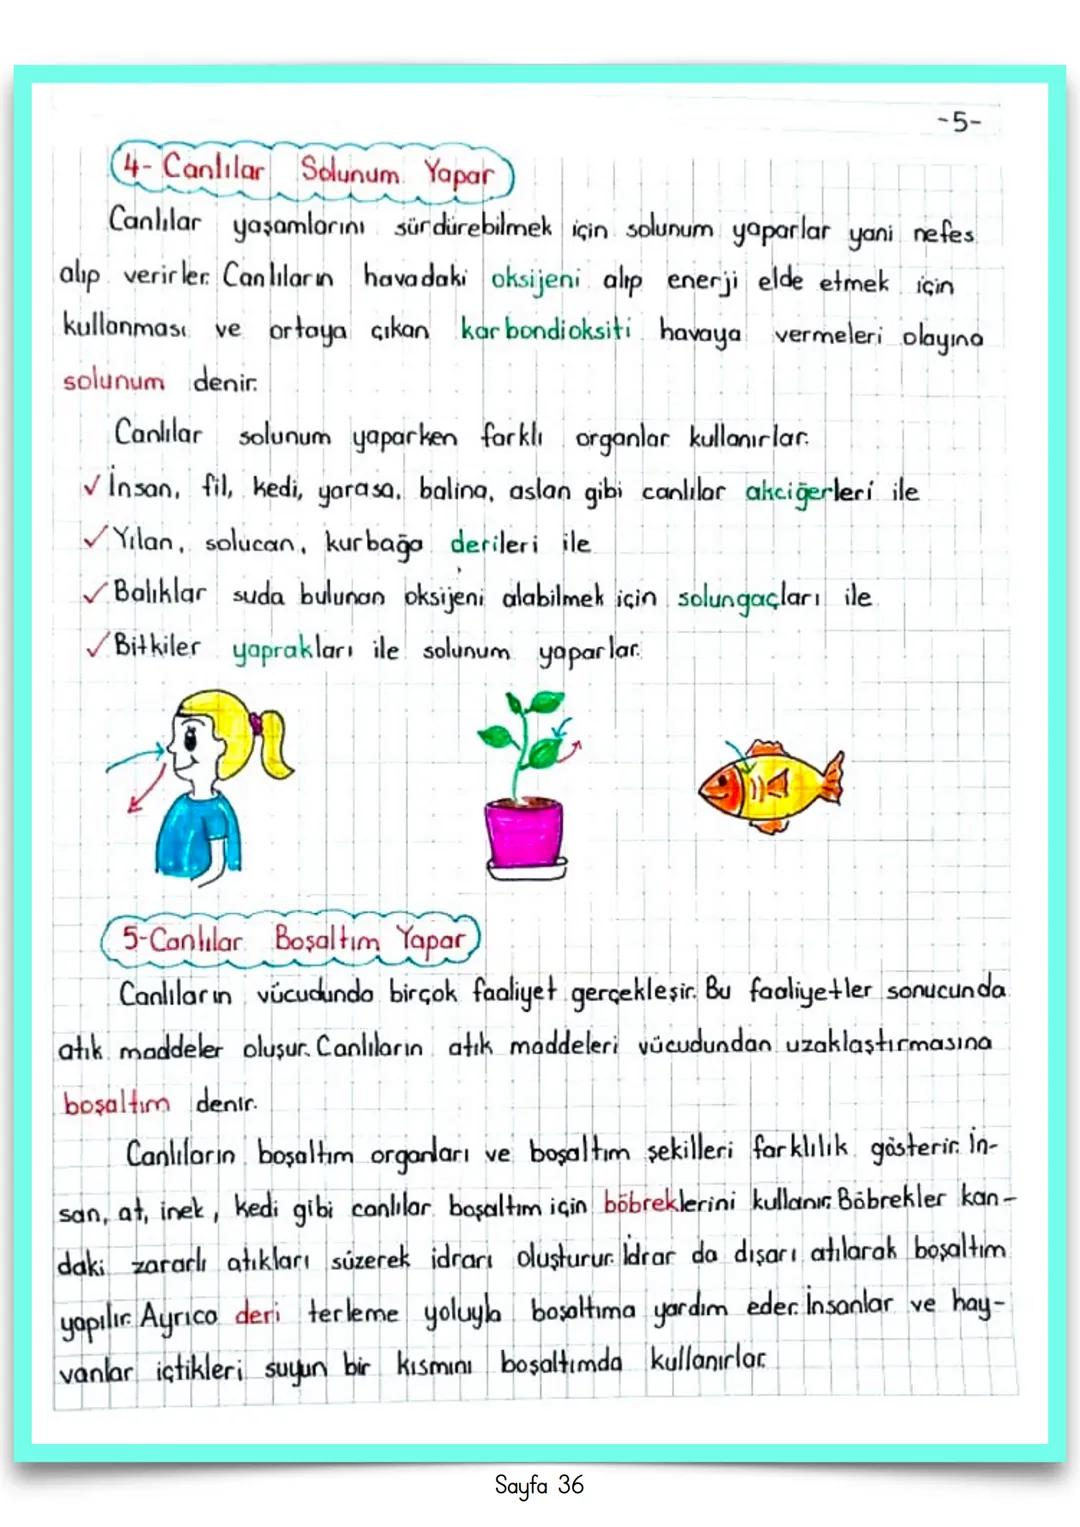 -5-
4- Canlılar Solunum Yapar
Canlılar yaşamlarını sürdürebilmek için solunum yaparlar yani nefes
alıp verirler. Canlıların havadaki oksijeni alıp enerji elde etmek için
kullanması ve ortaya çıkan karbondioksiti havaya vermeleri olayına
solunum denir.
Canlılar solunum yaparken farklı organlar kullanırlar.
✓ İnsan, fil, kedi, yarasa, balina, aslan gibi canlılar akciğerleri ile
✓ Yılan, solucan, kurbağa derileri ile
✓ Balıklar suda bulunan oksijeni alabilmek için solungaçları ile
✓ Bitkiler yaprakları ile solunum yaparlar.
5-Canlılar Boşaltım Yapar
Canlıların vücudunda birçok faaliyet gerçekleşir. Bu faaliyetler sonucunda
atık maddeler oluşur. Canlıların atık maddeleri vücudundan uzaklaştırmasına
boşaltım denir.
Canlıların boşaltım organları ve boşaltım şekilleri farklılık gösterir. İn-
san, at, inek, kedi gibi canlılar boşaltım için böbreklerini kullanır. Böbrekler kan-
daki zararlı atıkları süzerek idrarı oluşturur. İdrar da dışarı atılarak boşaltım
yapılır. Ayrıca deri terleme yoluyla boşaltıma yardım eder. İnsanlar ve hay-
vanlar içtikleri suyun bir kısmını boşaltımda kullanırlar.
Sayfa 36